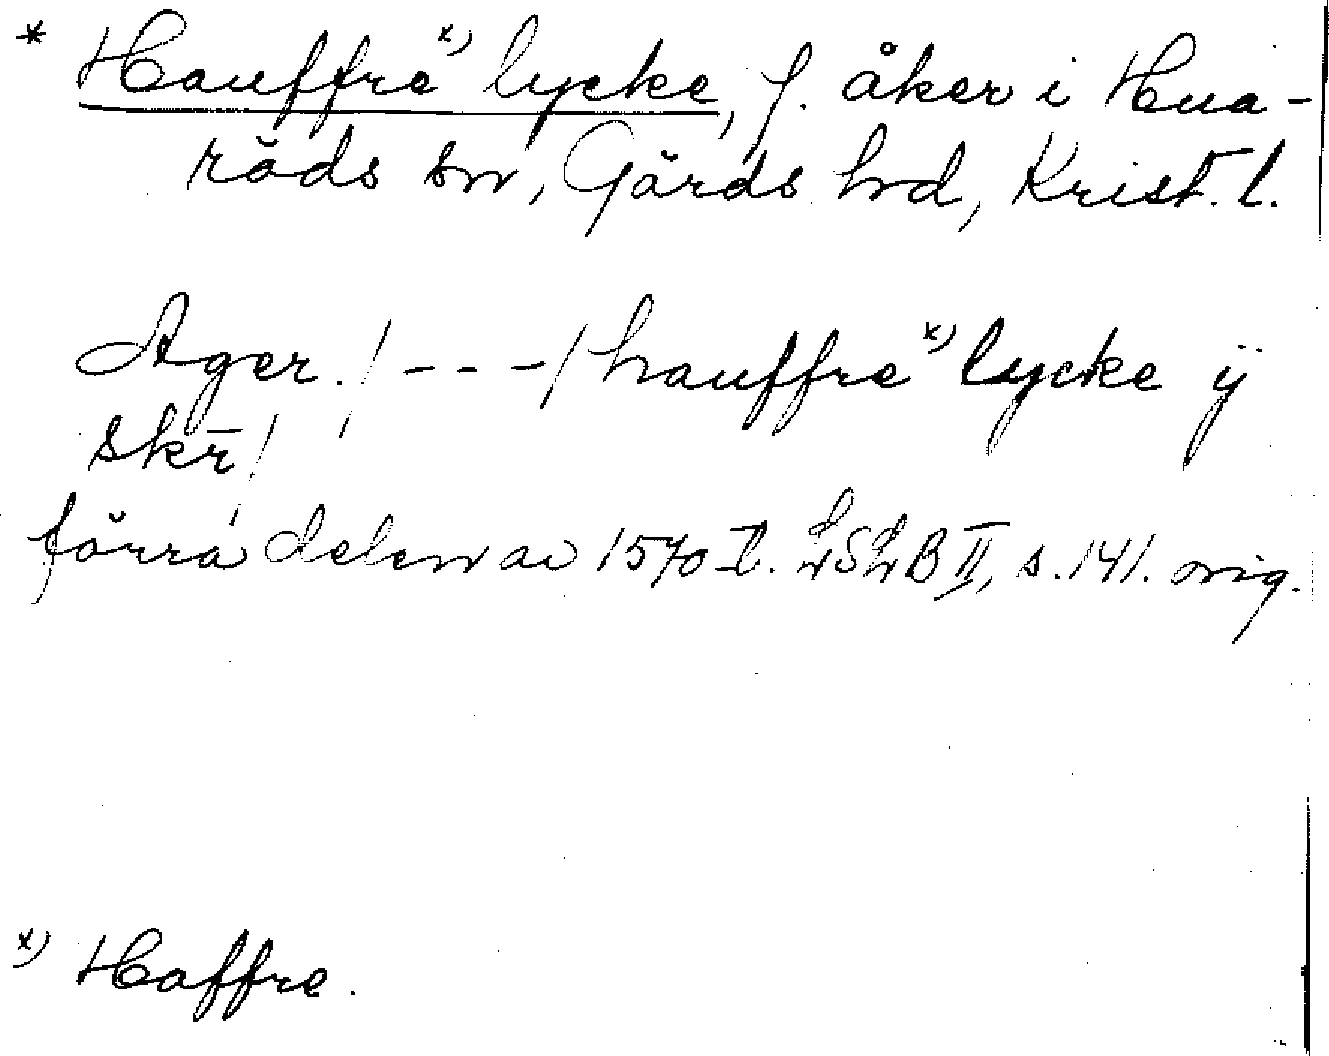 * Hauffre x) lycke, f. åker i Hua-
röds sn, Gärds hd, Krist. l.
Ager. / - - - / hauffre x) lycke ÿ
skr̄ /
förra delen av 1570-t. LSLB II, s. 141. orig.
x) Haffre.